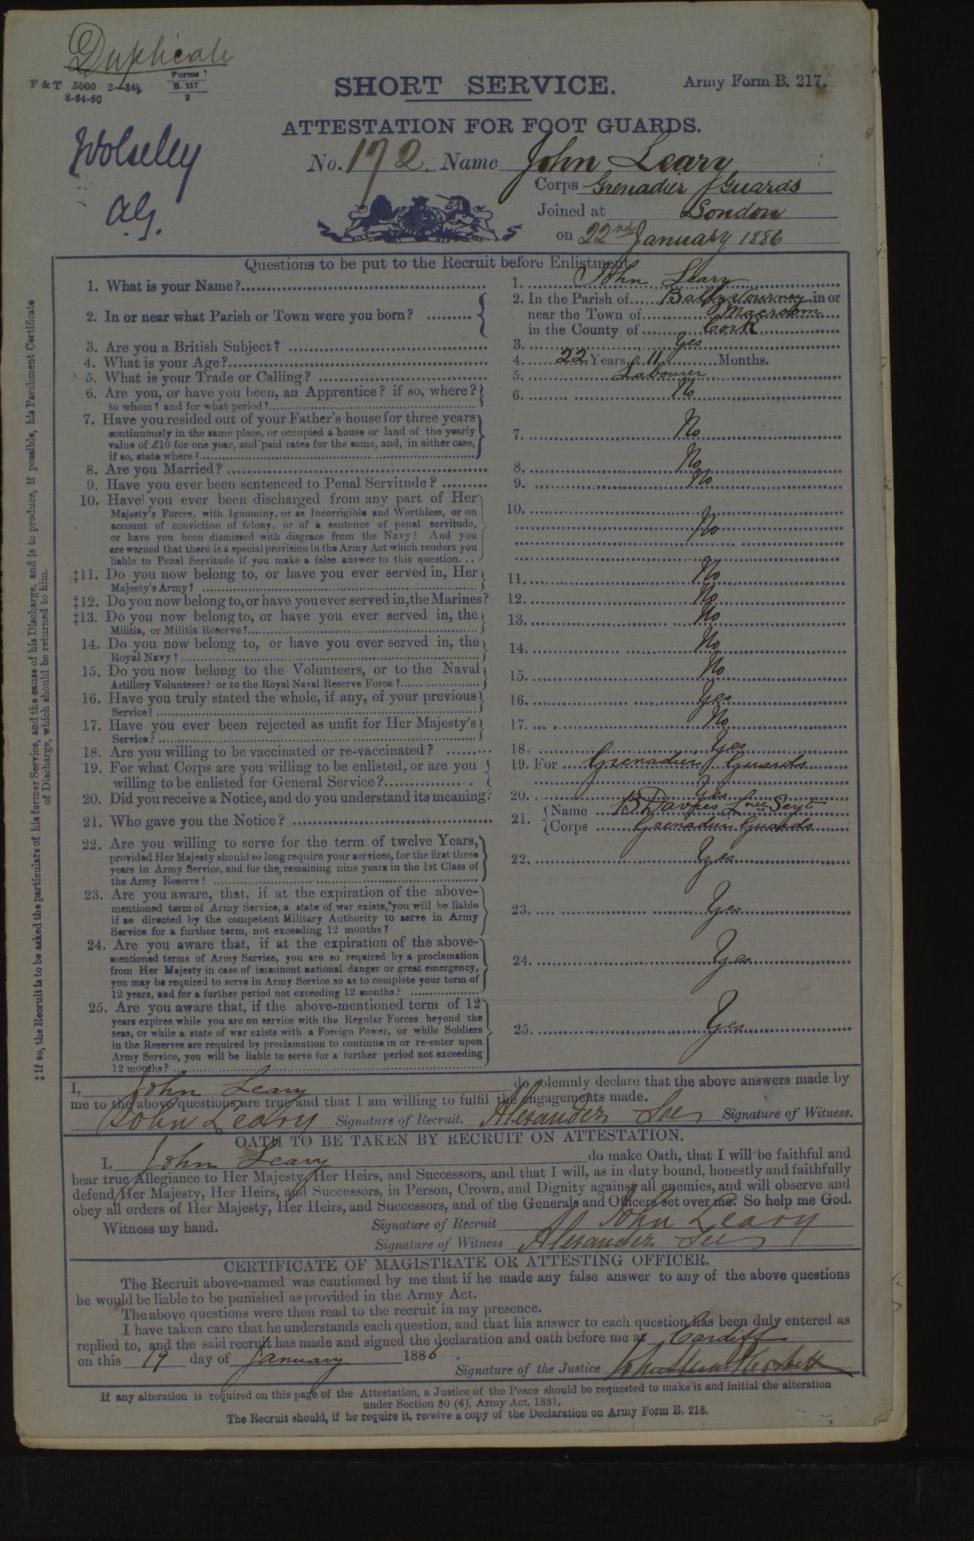 Duplicate
F & T 5000 2—84 Forms B. 217
8-64-60 2
SHORT SERVICE. Army Form B. 217.
ATTESTATION FOR FOOT GUARDS.
Wolseley
A.G.
No. 172 Name John Leary
Corps Grenadier Guards
Joined at London
on 22nd January 1886
Questions to be put to the Recruit before Enlistment.
1. What is your Name? 1. John Leary
2. In or near what Parish or Town were you born? 2. In the Parish of in or
near the Town of Macroom
in the County of Cork
3. Are you a British Subject? 3. Yes
4. What is your Age? 4. 22 Years 11 Months.
5. What is your Trade or Calling? 5. Labourer
6. Are you, or have you been, an Apprentice? if so, where? 6. No
to whom? and for what period?
7. Have you resided out of your Father's house for three years
continuously in the same place, or occupied a house or land of the yearly 7. No
value of £10 for one year, and paid rates for the same, and, in either case,
if so, state where?
8. Are you Married? 8. No
9. Have you ever been sentenced to Penal Servitude? 9. No
10. Have you ever been discharged from any part of Her 10. No
Majesty's Forces, with Ignominy, or as Incorrigible and Worthless, or on
account of conviction of felony, or of a sentence of penal servitude,
or have you been dismissed with disgrace from the Navy? And you
are warned that there is a special provision in the Army Act which renders you
liable to Penal Servitude if you make a false answer to this question.
‡11. Do you now belong to, or have you ever served in, Her 11. No
Majesty's Army?
‡12. Do you now belong to, or have you ever served in, the Marines? 12. No
‡13. Do you now belong to, or have you ever served in, the 13. No
Militia, or Militia Reserve?
14. Do you now belong to, or have you ever served in, the 14. No
Royal Navy?
15. Do you now belong to the Volunteers, or to the Naval 15. No
Artillery Volunteers? or to the Royal Naval Reserve Force?
16. Have you truly stated the whole, if any, of your previous 16. Yes
Service?
17. Have you ever been rejected as unfit for Her Majesty's 17. No
Service?
18. Are you willing to be vaccinated or re-vaccinated? 18. Yes
19. For what Corps are you willing to be enlisted, or are you 19. For Grenadier Guards
willing to be enlisted for General Service?
20. Did you receive a Notice, and do you understand its meaning? 20. Yes
21. Who gave you the Notice? 21. Name B Davies Sergt
Corps Grenadier Guards
22. Are you willing to serve for the term of twelve Years, 22. Yes
provided Her Majesty should so long require your services, for the first three
years in Army Service, and for the remaining nine years in the 1st Class of
the Army Reserve?
23. Are you aware, that, if at the expiration of the above- 23. Yes
mentioned term of Army Service, a state of war exists, you will be liable
if so directed by the competent Military Authority to serve in Army
Service for a further term, not exceeding 12 months?
24. Are you aware that, if at the expiration of the above- 24. Yes
mentioned terms of Army Service, you are so required by a proclamation
from Her Majesty in case of imminent national danger or great emergency,
you may be required to serve in Army Service so as to complete your term of
12 years, and for a further period not exceeding 12 months?
25. Are you aware that, if the above-mentioned term of 12 25. Yes
years expires while you are on service with the Regular Forces beyond the
seas, or while a state of war exists with a Foreign Power, or while Soldiers
in the Reserves are required by proclamation to continue in or re-enter upon
Army Service, you will be liable to serve for a further period not exceeding
12 months?
‡ If so, the Recruit is to be asked the particulars of his former Service, and the cause of his Discharge, and is to produce, if possible, his Parchment Certificate
of Discharge, which should be returned to him.
I, John Leary do solemnly declare that the above answers made by
me to the above questions are true and that I am willing to fulfil the engagements made.
John Leary Signature of Recruit. Alexander Lee Signature of Witness.
OATH TO BE TAKEN BY RECRUIT ON ATTESTATION.
I, John Leary do make Oath, that I will be faithful and
bear true Allegiance to Her Majesty, Her Heirs, and Successors, and that I will, as in duty bound, honestly and faithfully
defend Her Majesty, Her Heirs, and Successors, in Person, Crown, and Dignity against all enemies, and will observe and
obey all orders of Her Majesty, Her Heirs, and Successors, and of the Generals and Officers set over me. So help me God.
Witness my hand. Signature of Recruit John Leary
Signature of Witness Alexander Lee
CERTIFICATE OF MAGISTRATE OR ATTESTING OFFICER.
The Recruit above-named was cautioned by me that if he made any false answer to any of the above questions
he would be liable to be punished as provided in the Army Act.
The above questions were then read to the recruit in my presence.
I have taken care that he understands each question, and that his answer to each question has been duly entered as
replied to, and the said recruit has made and signed the declaration and oath before me at Cardiff
on this 19 day of January 1886
Signature of the Justice
If any alteration is required on this page of the Attestation, a Justice of the Peace should be requested to make it and initial the alteration
under Section 80 (6), Army Act, 1881.
The Recruit should, if he require it, receive a copy of the Declaration on Army Form B. 218.